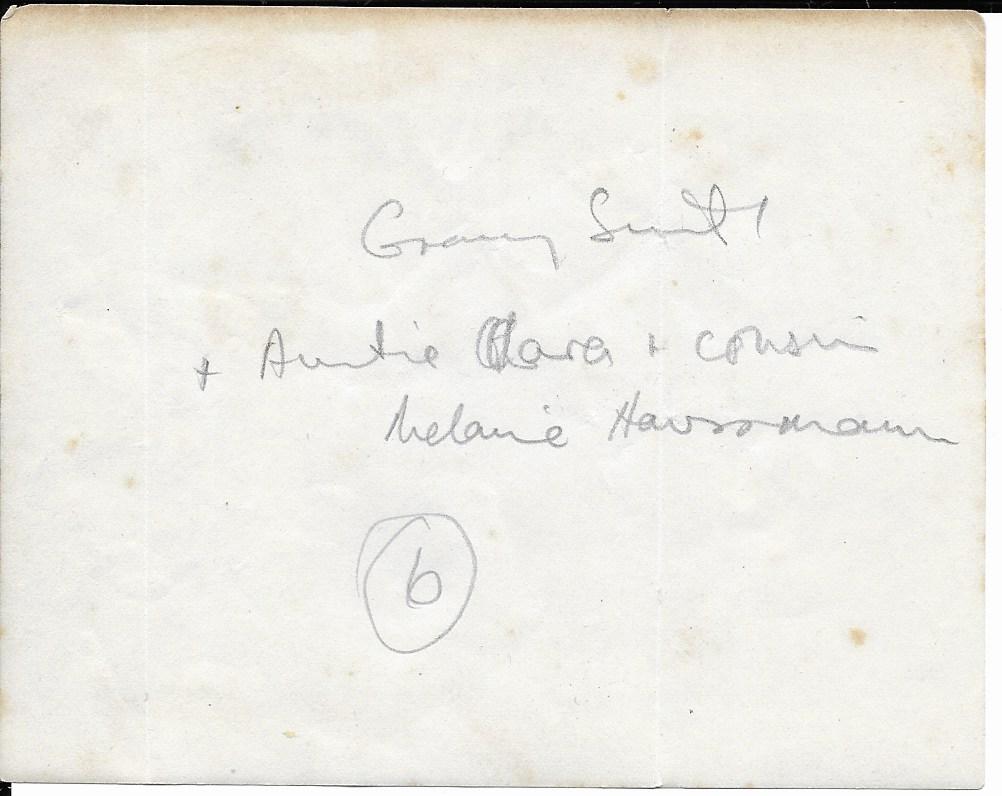 Granny Smith
+ Auntie Clara + cousin
Melanie Haussmann
6